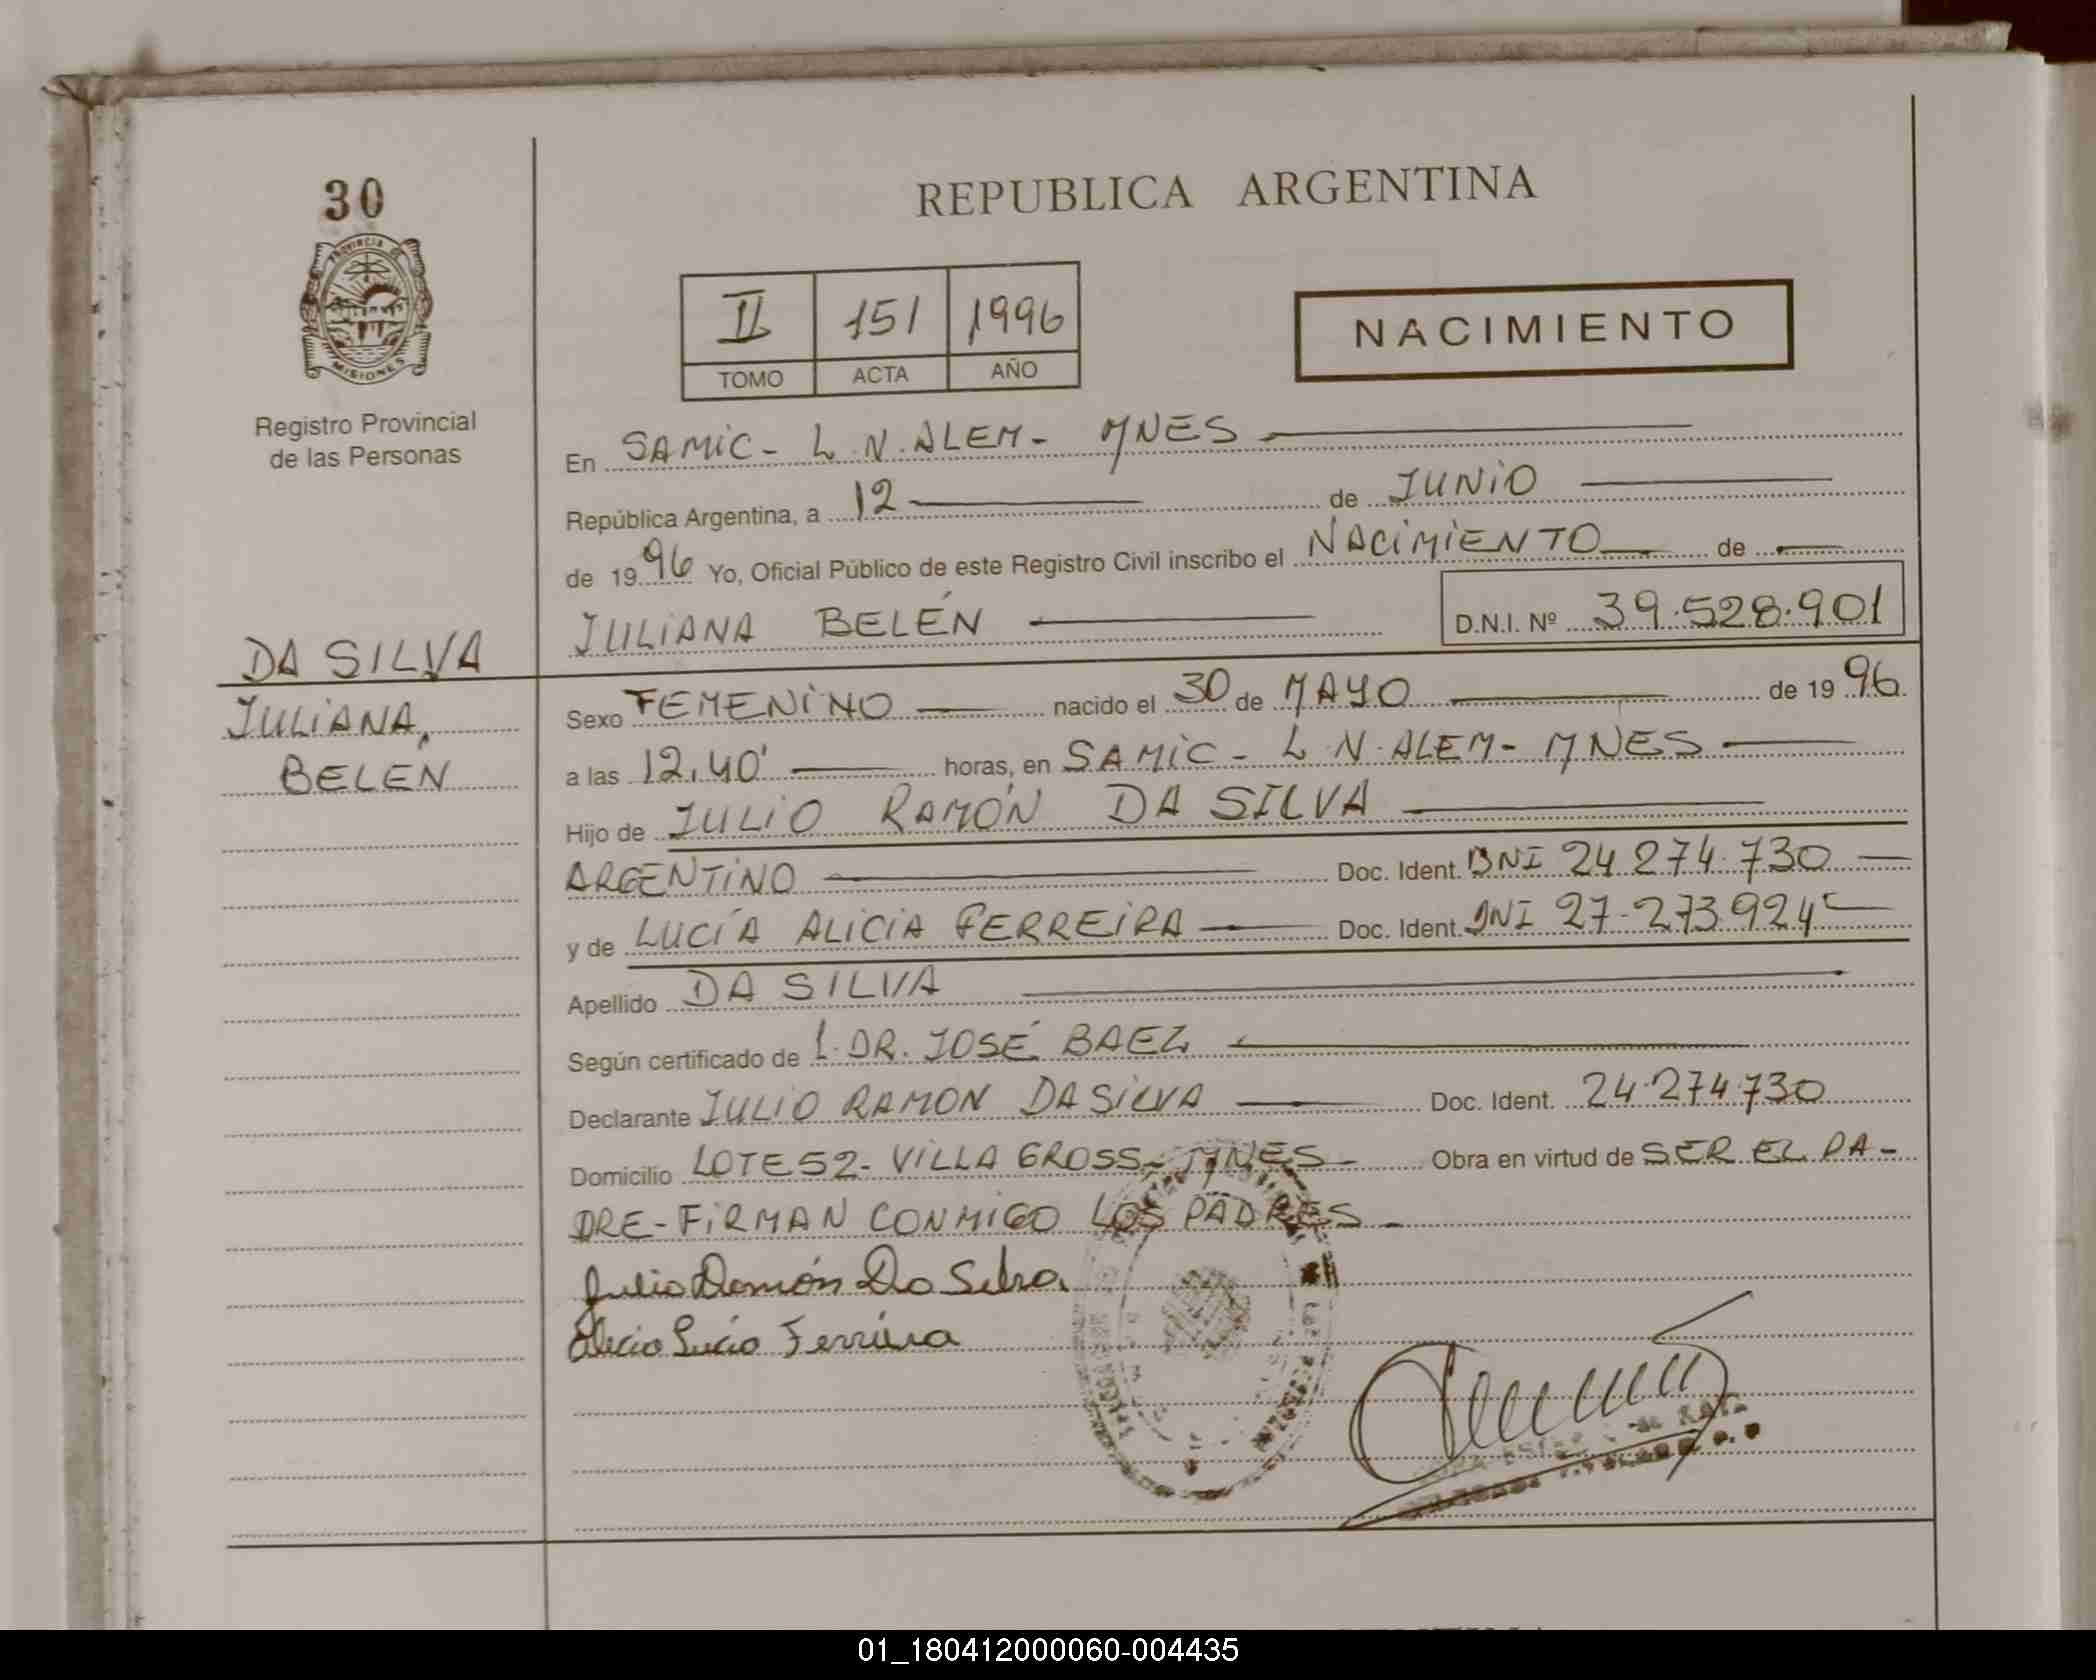 30
PROVINCIA DE
MISIONES
Registro Provincial
de las Personas
DA SILVA
JULIANA,
BELEN
REPUBLICA ARGENTINA
II 151 1996
TOMO ACTA AÑO
NACIMIENTO
En SAMIC - L.N. ALEM - MNES
República Argentina, a 12 de JUNIO
de 1996 Yo, Oficial Público de este Registro Civil inscribo el NACIMIENTO de
JULIANA BELÉN D.N.I. Nº 39.528.901
Sexo FEMENINO nacido el 30 de MAYO de 1996
a las 12,40' horas, en SAMIC - L.N. ALEM - MNES
Hijo de JULIO RAMÓN DA SILVA
ARGENTINO Doc. Ident. DNI 24.274.730
y de LUCÍA ALICIA FERREIRA Doc. Ident. DNI 27.273.924
Apellido DA SILVA
Según certificado de 1. DR. JOSÉ BAEZ
Declarante JULIO RAMÓN DA SILVA Doc. Ident. 24.274.730
Domicilio LOTE 52 - VILLA GROSS - MNES - Obra en virtud de SER EL PA-
DRE - FIRMAN CONMIGO LOS PADRES -
Julio Ramón Da Silva
Alicia Lucia Ferreira
01_180412000060-004435